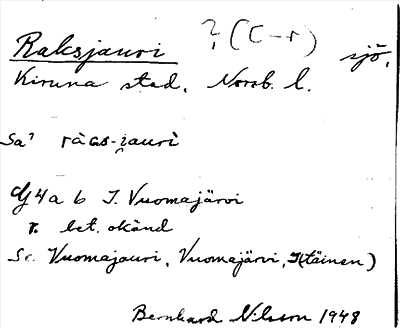 Raksjauri ? (C-r) sjö,
Kiruna stad, Norrb. l.
Sa? ràɢs-i̯auri
4a b J. Vuomajärvi
r. bet. okänd
Vuomajauri, Vuomajärvi,
Bernhard Nilsson 1948